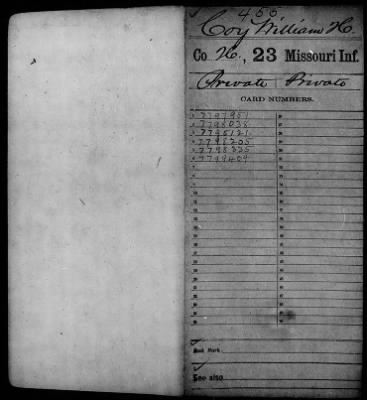 455
Coy William H.
Co. H., 23 Missouri Inf.
Private Private
CARD NUMBERS.
7797951
7798038
7798121
7798205
7798325
7798409
Book Mark:
See also